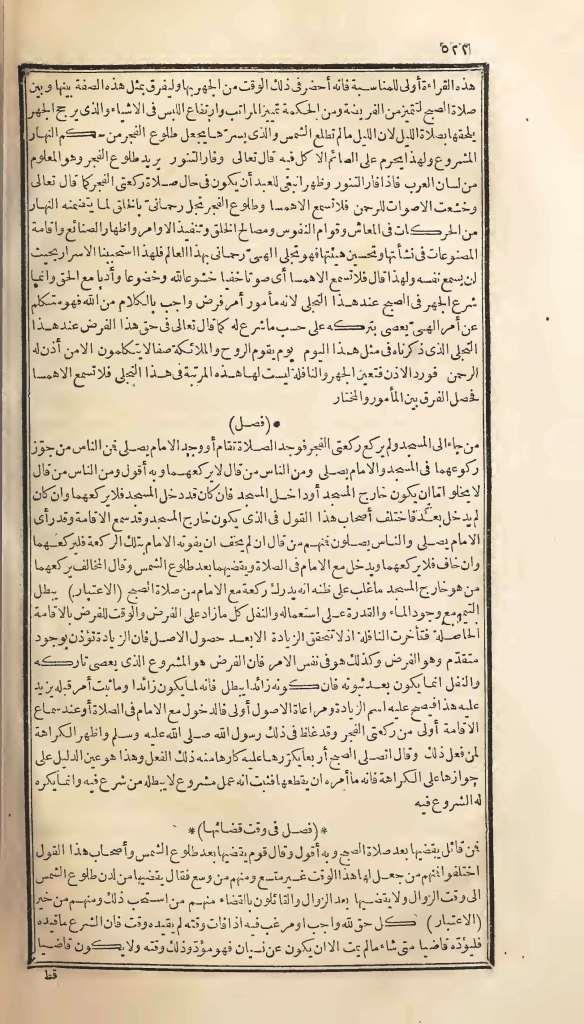 ٥٢٢
هذه القراءة أولى للمناسبة فانه أحضر فى ذلك الوقت من الجهر بها وليفرق بمثل هذه الصفة بينها وبين
صلاة الصبح لتتميز من الفريضة ومن الحكمة تمييز المراتب وارتفاع اللبس فى الاشياء والذى يرجح الجهر
يلحقها بصلاة الليل لان الليل مالم تطلع الشمس والذى يسر بها يجعل طلوع الفجر من حكم النهار
المشروع ولهذا يحرم على الصائم الاكل فيه قال تعالى وفار التنور يريد طلوع الفجر وهو المعلوم
من لسان العرب فاذا فار التنور وظهر انبغى للعبد أن يكون فى حال صلاة ركعتى الفجر كما قال تعالى
وخشعت الاصوات للرحمن فلا تسمع الا همسا وطلوع الفجر تجل رحمانى بالخلق لما يتضمنه النهار
من الحركات فى المعاش وقوام النفوس ومصالح الخلق وتنفيذ الاوامر واظهار الصنائع واقامة
المصنوعات فى نشأتها وتحسين هيئتها فهو تجلى الهى رحمانى بهذا العالم فلهذا استحببنا الاسرار بحيث
ان يسمع نفسه ولهذا قال فلا تسمع الا همسا أى صوتا خفيا خشوعا لله وخضوعا وأدبا مع الحق وانما
شرع الجهر فى الصبح عند هذا التجلى لانه مأمور أمر فرض واجب بالكلام من الله فهو متكلم
عن أمر الهى يعصى بتركه على حسب ما شرع له كما قال تعالى فى حق هذا الفرض عند هذا
التجلى الذى ذكرناه فى مثل هذا اليوم يوم يقوم الروح والملائكة صفا لا يتكلمون الا من أذن له
الرحمن فورد الاذن فتعين الجهر والنافلة ليست لها هذه المرتبة فى هذا التجلى فلا تسمع الا همسا
فحصل الفرق بين المأمور والمختار
(فصل)
من جاء الى المسجد ولم يركع ركعتى الفجر فوجد الصلاة تقام أو وجد الامام يصلى فمن الناس من جوّز
ركوعهما فى المسجد والامام يصلى ومن الناس من قال لا يركعهما وبه أقول ومن الناس من قال
لا يخلو اما ان يكون خارج المسجد أو داخل المسجد فان كان قد دخل المسجد فلا يركعهما وان كان
لم يدخل بعد فاختلف أصحاب هذا القول فى الذى يكون خارج المسجد وقد سمع الاقامة وقد رأى
الامام يصلى والناس يصلون فمنهم من قال ان لم يخف ان يفوته الامام بتلك الركعة فليركعهما
وان خاف فلا يركعهما ويدخل مع الامام فى الصلاة ويقضيهما بعد طلوع الشمس وقال المخالف يركعهما
من هو خارج المسجد ما غلب على ظنه انه يدرك ركعة مع الامام من صلاة الصبح (الاعتبار) يبطل
التيمم مع وجود الماء والقدرة على استعماله والنفل كل ما زاد على الفرض والوقت للفرض بالاقامة
الحاصلة فتأخرت النافلة اذ لا تتحقق الزيادة الا بعد حصول الاصل فان الزيادة تؤذن بوجود
متقدّم وهو الفرض وكذلك هو فى نفس الامر فان الفرض هو المشروع الذى يعصى تاركه
والنفل انما يكون بعد ثبوته فان كونه زائدا يبطل فانه لما يكون زائدا وما ثبت أمر قبله يزيد
عليه هذا فيصح عليه اسم الزيادة ومراعاة الاصول أولى فالدخول مع الامام فى الصلاة أو عند سماع
الاقامة أولى من ركعتى الفجر وقد غاظ فى ذلك رسول الله صلى الله عليه وسلم واظهر الكراهة
لمن فعل ذلك وقال اتصلى الصبح أربعا يكررها عليه كارها منه ذلك الفعل وهذا هو عين الدليل على
جوازها على الكراهة فانه ما أمره ان يقطعها فثبت أنه عمل مشروع لا يبطله من شرع فيه وانما يكره
له الشروع فيه
*(فصل فى وقت قضائها)*
فمن قائل يقضيها بعد صلاة الصبح وبه أقول وقال قوم يقضيها بعد طلوع الشمس وأصحاب هذا القول
اختلفوا فمنهم من جعل لها هذا الوقت غير متسع ومنهم من وسع فقال يقضيها من لدن طلوع الشمس
الى وقت الزوال ولا يقضيها بعد الزوال والقائلون بالقضاء منهم من استحب ذلك ومنهم من خير
(الاعتبار) كل حق لله واجب أو مرغب فيه اذا فات وقته لم يقيده وقت فان الشرع ما قيده
فليؤدّه قاضيا متى شاء مالم يمت الا ان يكون عن نسيان فهو مؤدّ وذلك وقته ولا يكون قاضيا
قط